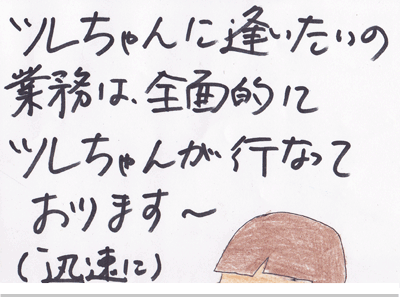 ツレちゃんに逢いたいの
業務は、全面的に
ツレちゃんが行なって
おります～
(迅速に)